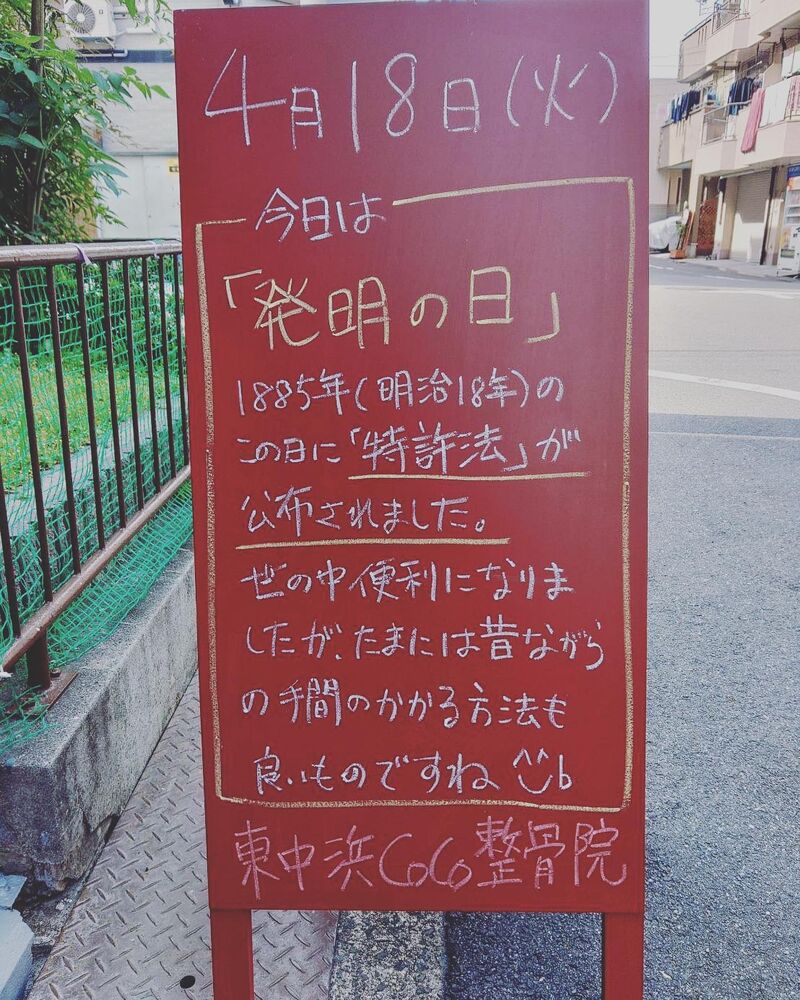 4月18日(火)
今日は
「発明の日」
1885年(明治18年)の
この日に「特許法」が
公布されました。
世の中便利になりま
したが、たまには昔ながら
の手間のかかる方法も
良いものですね ^^b
東中浜CoCo整骨院